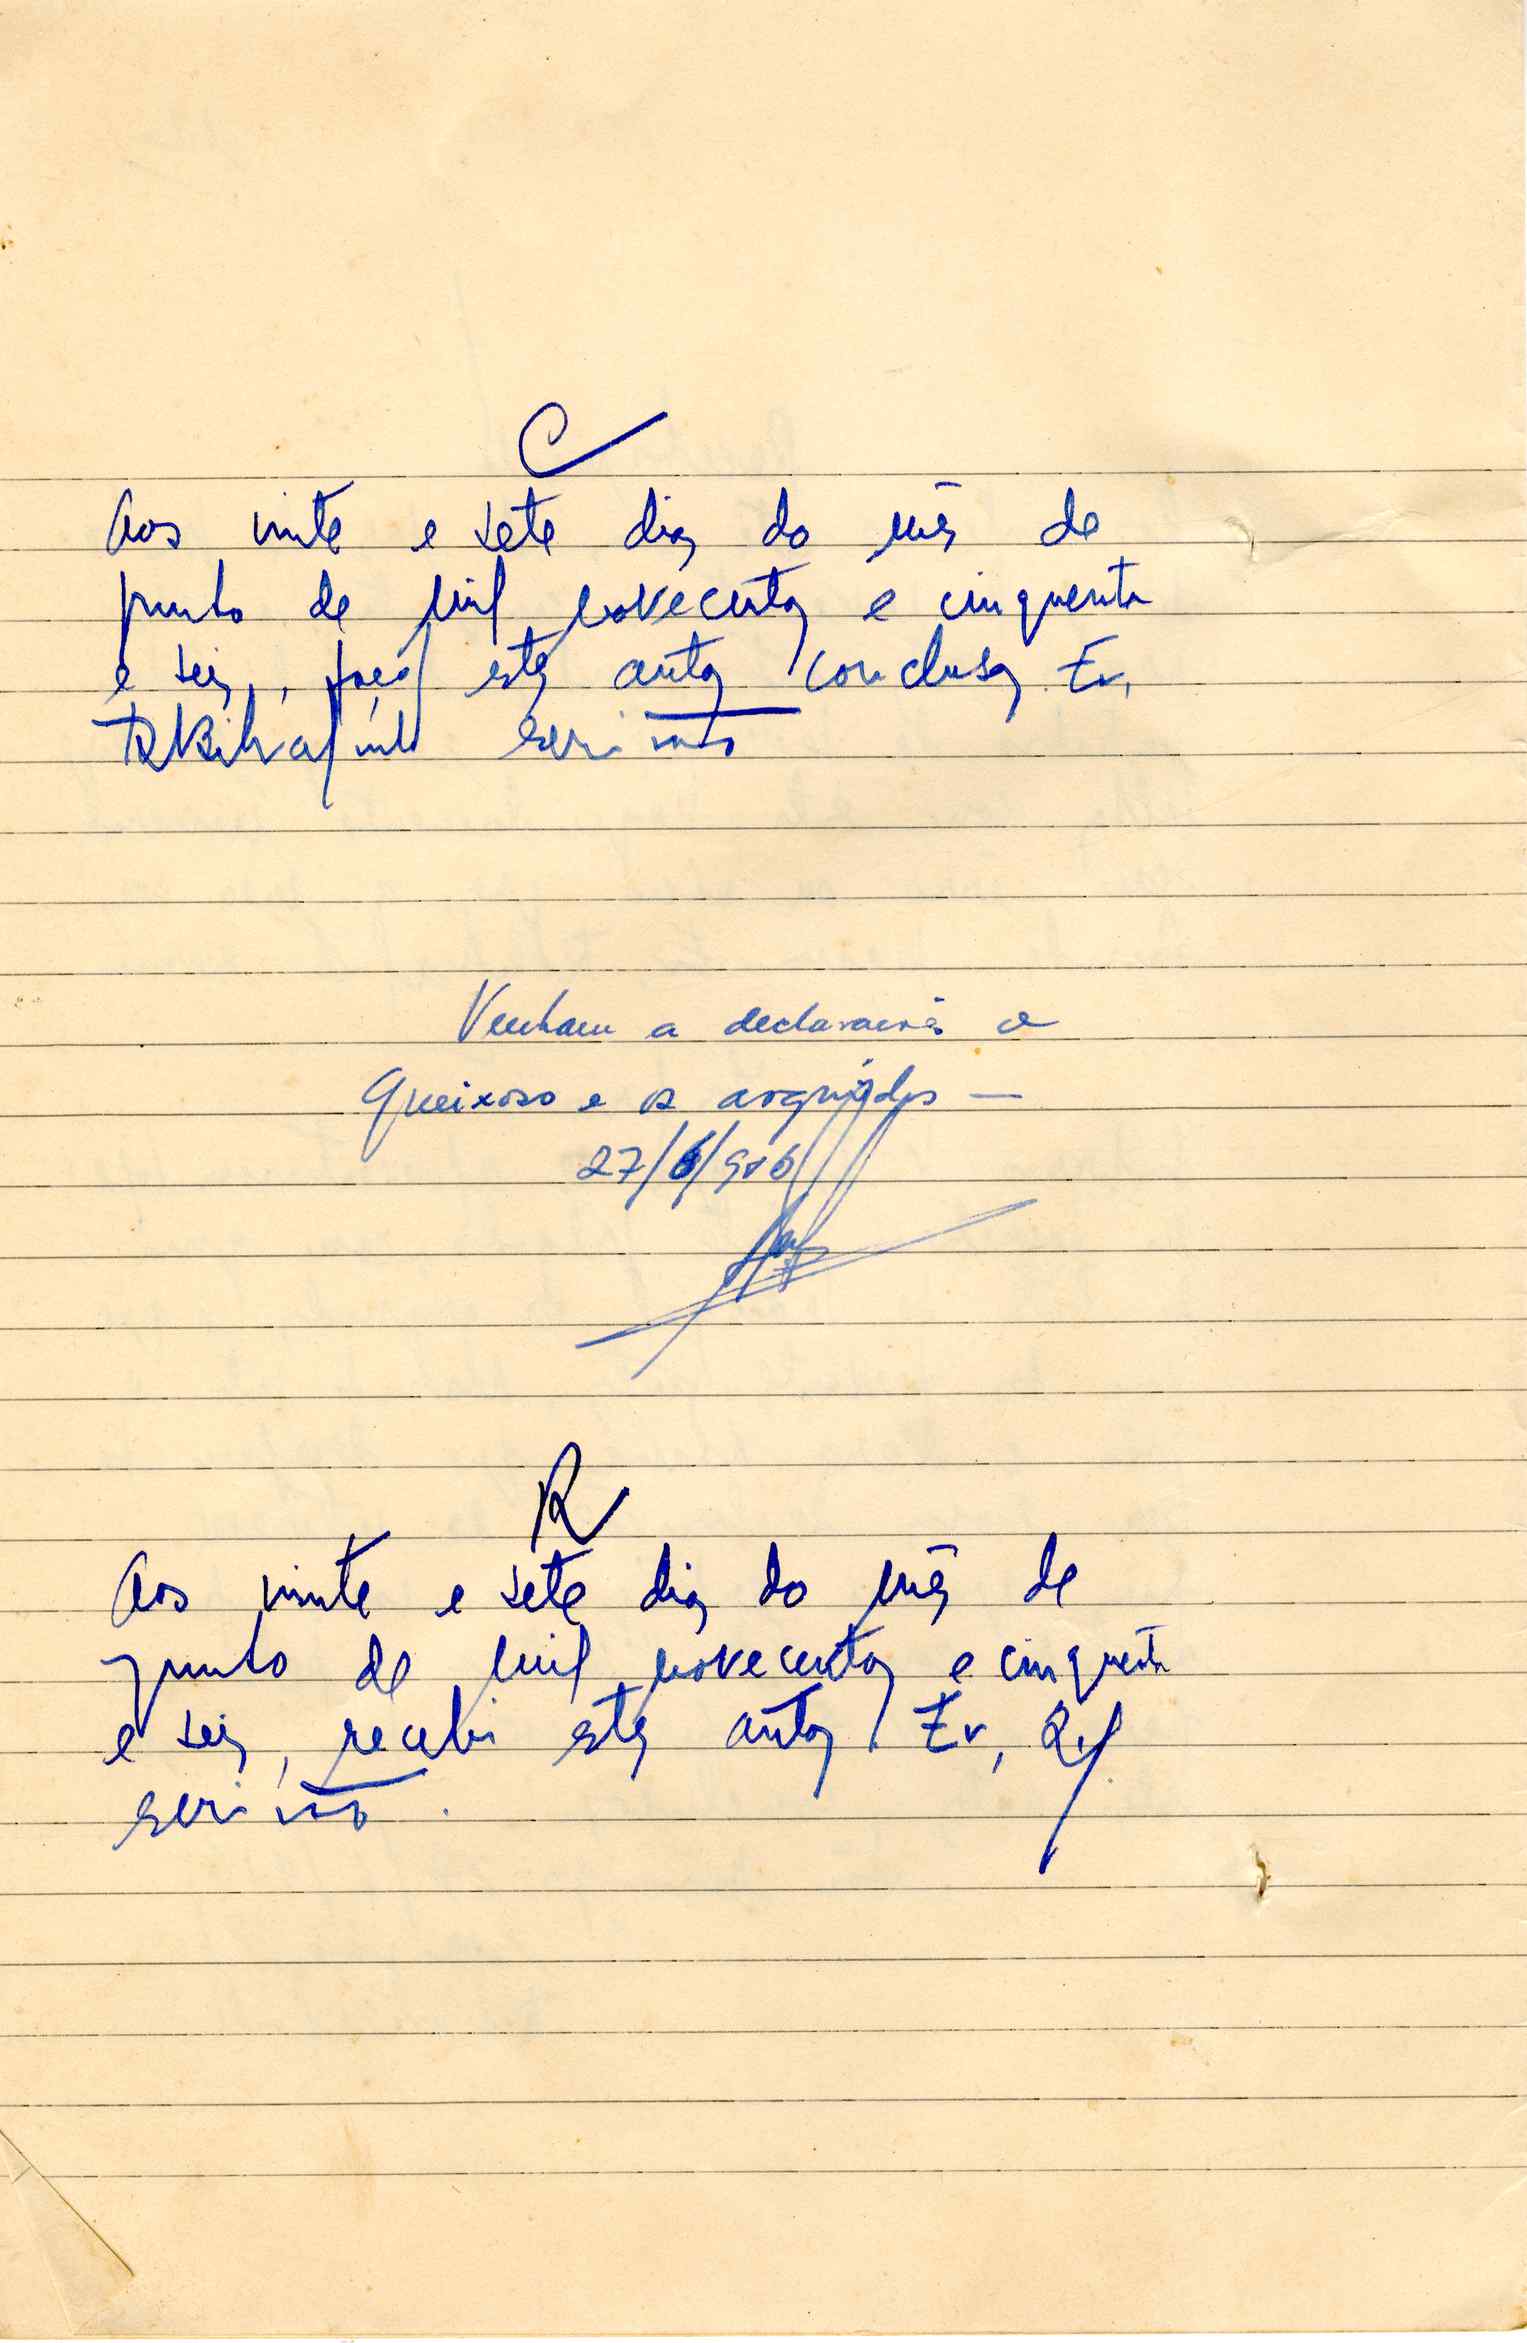 C
Aos vinte e sete dias do mês de
junho de mil novecentos e cinquenta
e seis, faço estes autos conclusos. Eu,
escrivão
Venham a declarações o
Queixoso e os arguidos —
27/6/956
R
Aos vinte e sete dias do mês de
junho de mil novecentos e cinquenta
e seis, recebi estes autos. Eu,
escrivão.